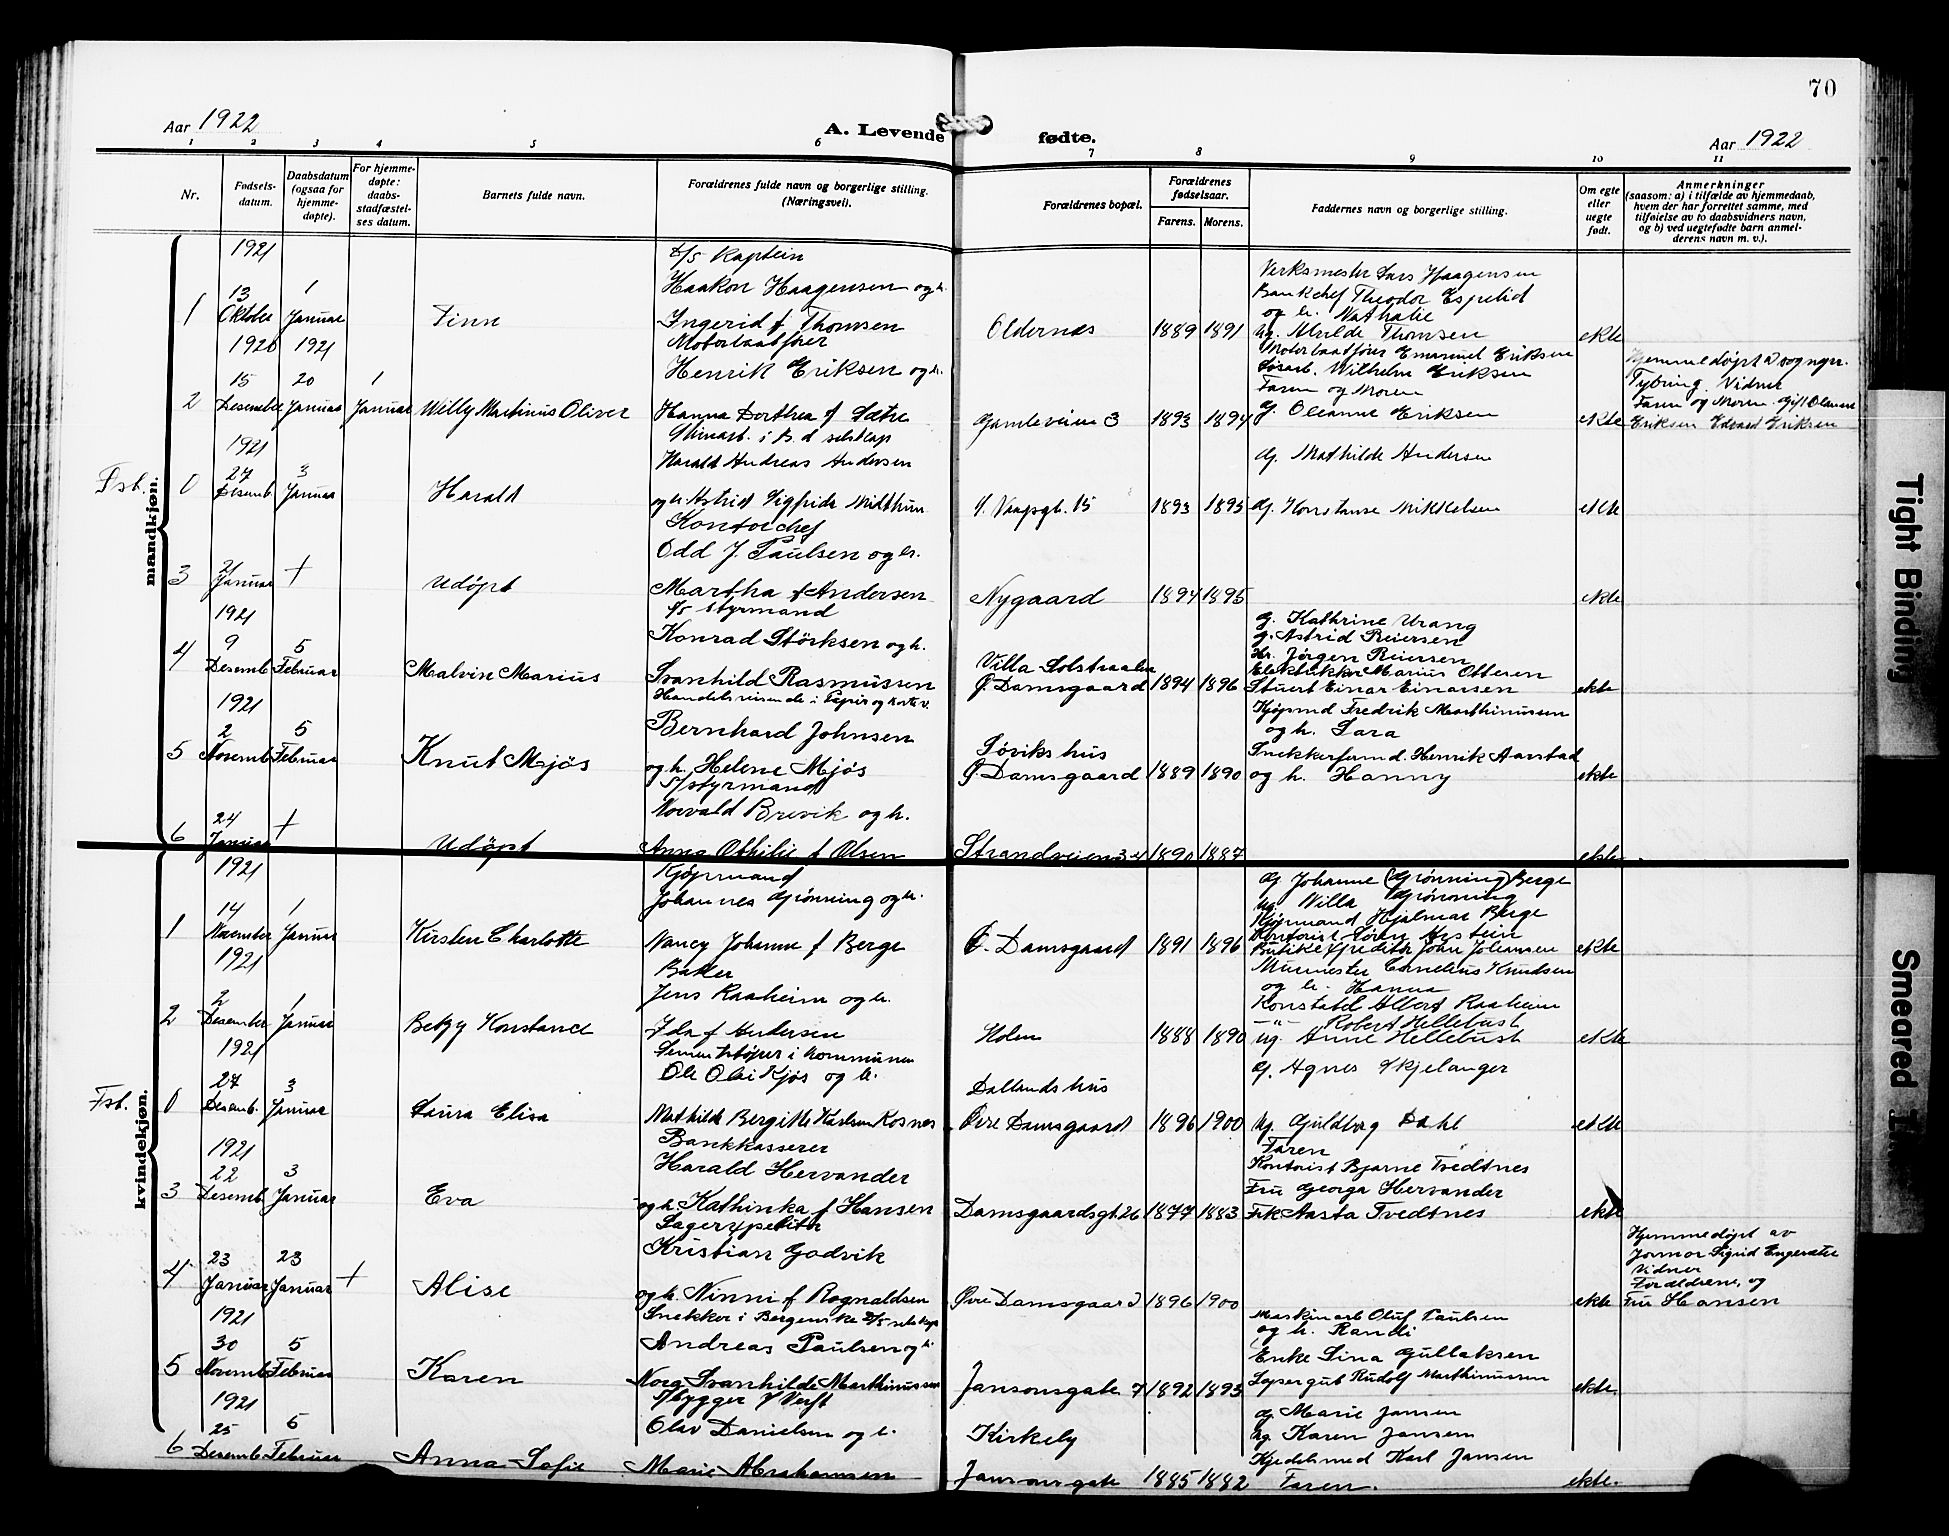 70
Aar 1922
A. Levende fødte.
Aar 1922
1 2 3 4 5 6 7 8 9 10 11
Nr.
Fødsels-
datum.
Daabsdatum
(ogsaa for
hjemme-
døpte).
For hjemme-
døpte:
daabs-
stadfæstel-
ses datum.
Barnets fulde navn.
Forældrenes fulde navn og borgerlige stilling.
(Næringsvei).
Forældrenes bopæl.
Forældrenes
fødselsaar.
Farens. Morens.
Faddernes navn og borgerlige stilling.
Om egte
eller
uegte
født.
Anmerkninger
(saasom: a) i tilfælde av hjemmedaab,
hvem der har forrettet samme, med
tilføielse av to daabsvidners navn,
og b) ved uegtefødte barn anmel-
derens navn m. v.).
mandkjøn.
1
1921
13
Oktober
1
Januar
Finn
t/s Kaptein
Haakon Haagensen og h.
Ingerid f Thomsen
Oldernæs
1889 1891
Verksmester Lars Haagensen
Bankchef Theodor Espelid
og h. Nathalie
Ug. Thomsen
ekte
2
1920
15
Desember
1921
20
Januar
1
Januar
Willy Martinus Oliver
Motorbaatfører
Henrik Eriksen og h.
Hanna Dorthea f Sætre
Gamleveien 3
1893 1894
Motorbaatfører Emanuel Eriksen
Wilhelm Eriksen
Faren og Moren
g. Oleanne Eriksen
ekte
Hjemmedøpt av sognepr.
Tybring. Vidner
Faren og Moren. Gift Oleanne
Eriksen Edvard Eriksen
Fsb. 0
1921
27
Desemb.
3
Januar
Harald
i B. d selskap
Harald Andreas Andersen
og h. Astrid Sigfride Midthun
1893 1895
g. Mathilde Andersen
g. Konstanse Mikkelsen
ekte
3
21
Januar
+
Udøpt
Kontorchef
Odd J. Paulsen og h.
Martha f Andersen
Nygaard
1894 1895
ekte
4
1921
9
Desemb.
5
Februar
Malvin Marius
t/s styrmand
Konrad Störksen og h.
Svanhild Rasmussen
Villa Solstraalen
Ø. Damsgaard
1894 1896
g. Kathrine Urang
g. Astrid Reiersen
Hr. Jörgen Reiersen
Elektrikker Marius Ottesen
Stuert Einar Einarsen
ekte
5
1921
2
Novemb.
5
Februar
Knut Mjøs
Handelsreisende i Papir og
Bernhard Johnsen
og h. Helene Mjøs
Søviks hus
Ø. Damsgaard
1889 1890
Kjøpmd Fredrik Marthinussen
og h. Sara
Snekkerformd. Henrik Aarstad
og h. Hanny
ekte
6
24
Januar
+
Udøpt
S/styrmand
Norvald Brevik og h.
Anna Othilie f Olsen
Strandveien 34
1890 1887
ekte
kvindekjøn.
1
1921
14
November
1
Januar
Kirsten Charlotte
Kjøpmand
Johannes Grönning og h.
Nancy Johanne f Berge
Ø. Damsgaard
1891 1896
g. Johanne (Grönning) Berge
ug. Villa Grönning
Kjøpmand Hjalmar Berge
Kontorist Sören Arstein
Johan Johansen
ekte
2
1921
2
Desember
1
Januar
Betzy Konstance
Baker
Jens Raaheim og h.
Ida f Andersen
Holen
1888 1890
Murmester Cornelius Knudsen
og h. Hanna
Konstabel Albert Raaheim
-"- Robert Hellebust
ug. Anne Hellebust
ekte
Fsb. 0
1921
27
Desemb.
3
Januar
Laura Elisa
Sementstöper i kommunen
Ole Olai Kjøs og h.
Mathilde Bergitte Karlsen Rosnes
Dallands hus
Øvre Damsgaard
1896 1900
g. Agnes Skjelanger
ug. Guldborg Dahl
ekte
3
1921
22
Desemb.
3
Januar
Eva
Bankkasserer
Harald Hervander
og h. Kathinka f Hansen
Damsgaardsgt. 26
1877 1883
Faren
Kontorist Bjarne Tvedtnes
Fru Georga Hervander
Frk Aasta Tvedtnes
ekte
4
23
Januar
23
Januar
+
Alise
Lagerexpeditör
Kristian Godvik
og h. Ninni f Rognaldsen
Øvre Damsgaard
1896 1900
ekte
Hjemmedøpt av
Jormor Sigrid Engesæter
Vidner
Forældrene, og
Fru Hansen
5
1921
30
Novemb.
5
Februar
Karen
Snekker i Bergenske D/s selskap
Andreas Paulsen og h.
Nora Svanhilde Marthinussen
Jansonsgate 7
1892 1893
Maskinarb Oluf Paulsen
og h. Randi
Enke Lina Gullaksen
Løpergut Rudolf Marthinussen
ekte
6
1921
25
Desemb.
5
Februar
Anna Sofie
Olav Danielsen og h.
Marie Abrahamsen
Kirkely
Jansonsgate
1885 1882
g. Marie Jansen
ug. Karen Jansen
Kjedelsmed Karl Jansen
Faren.
ekte.
Tight Binding
Smeared